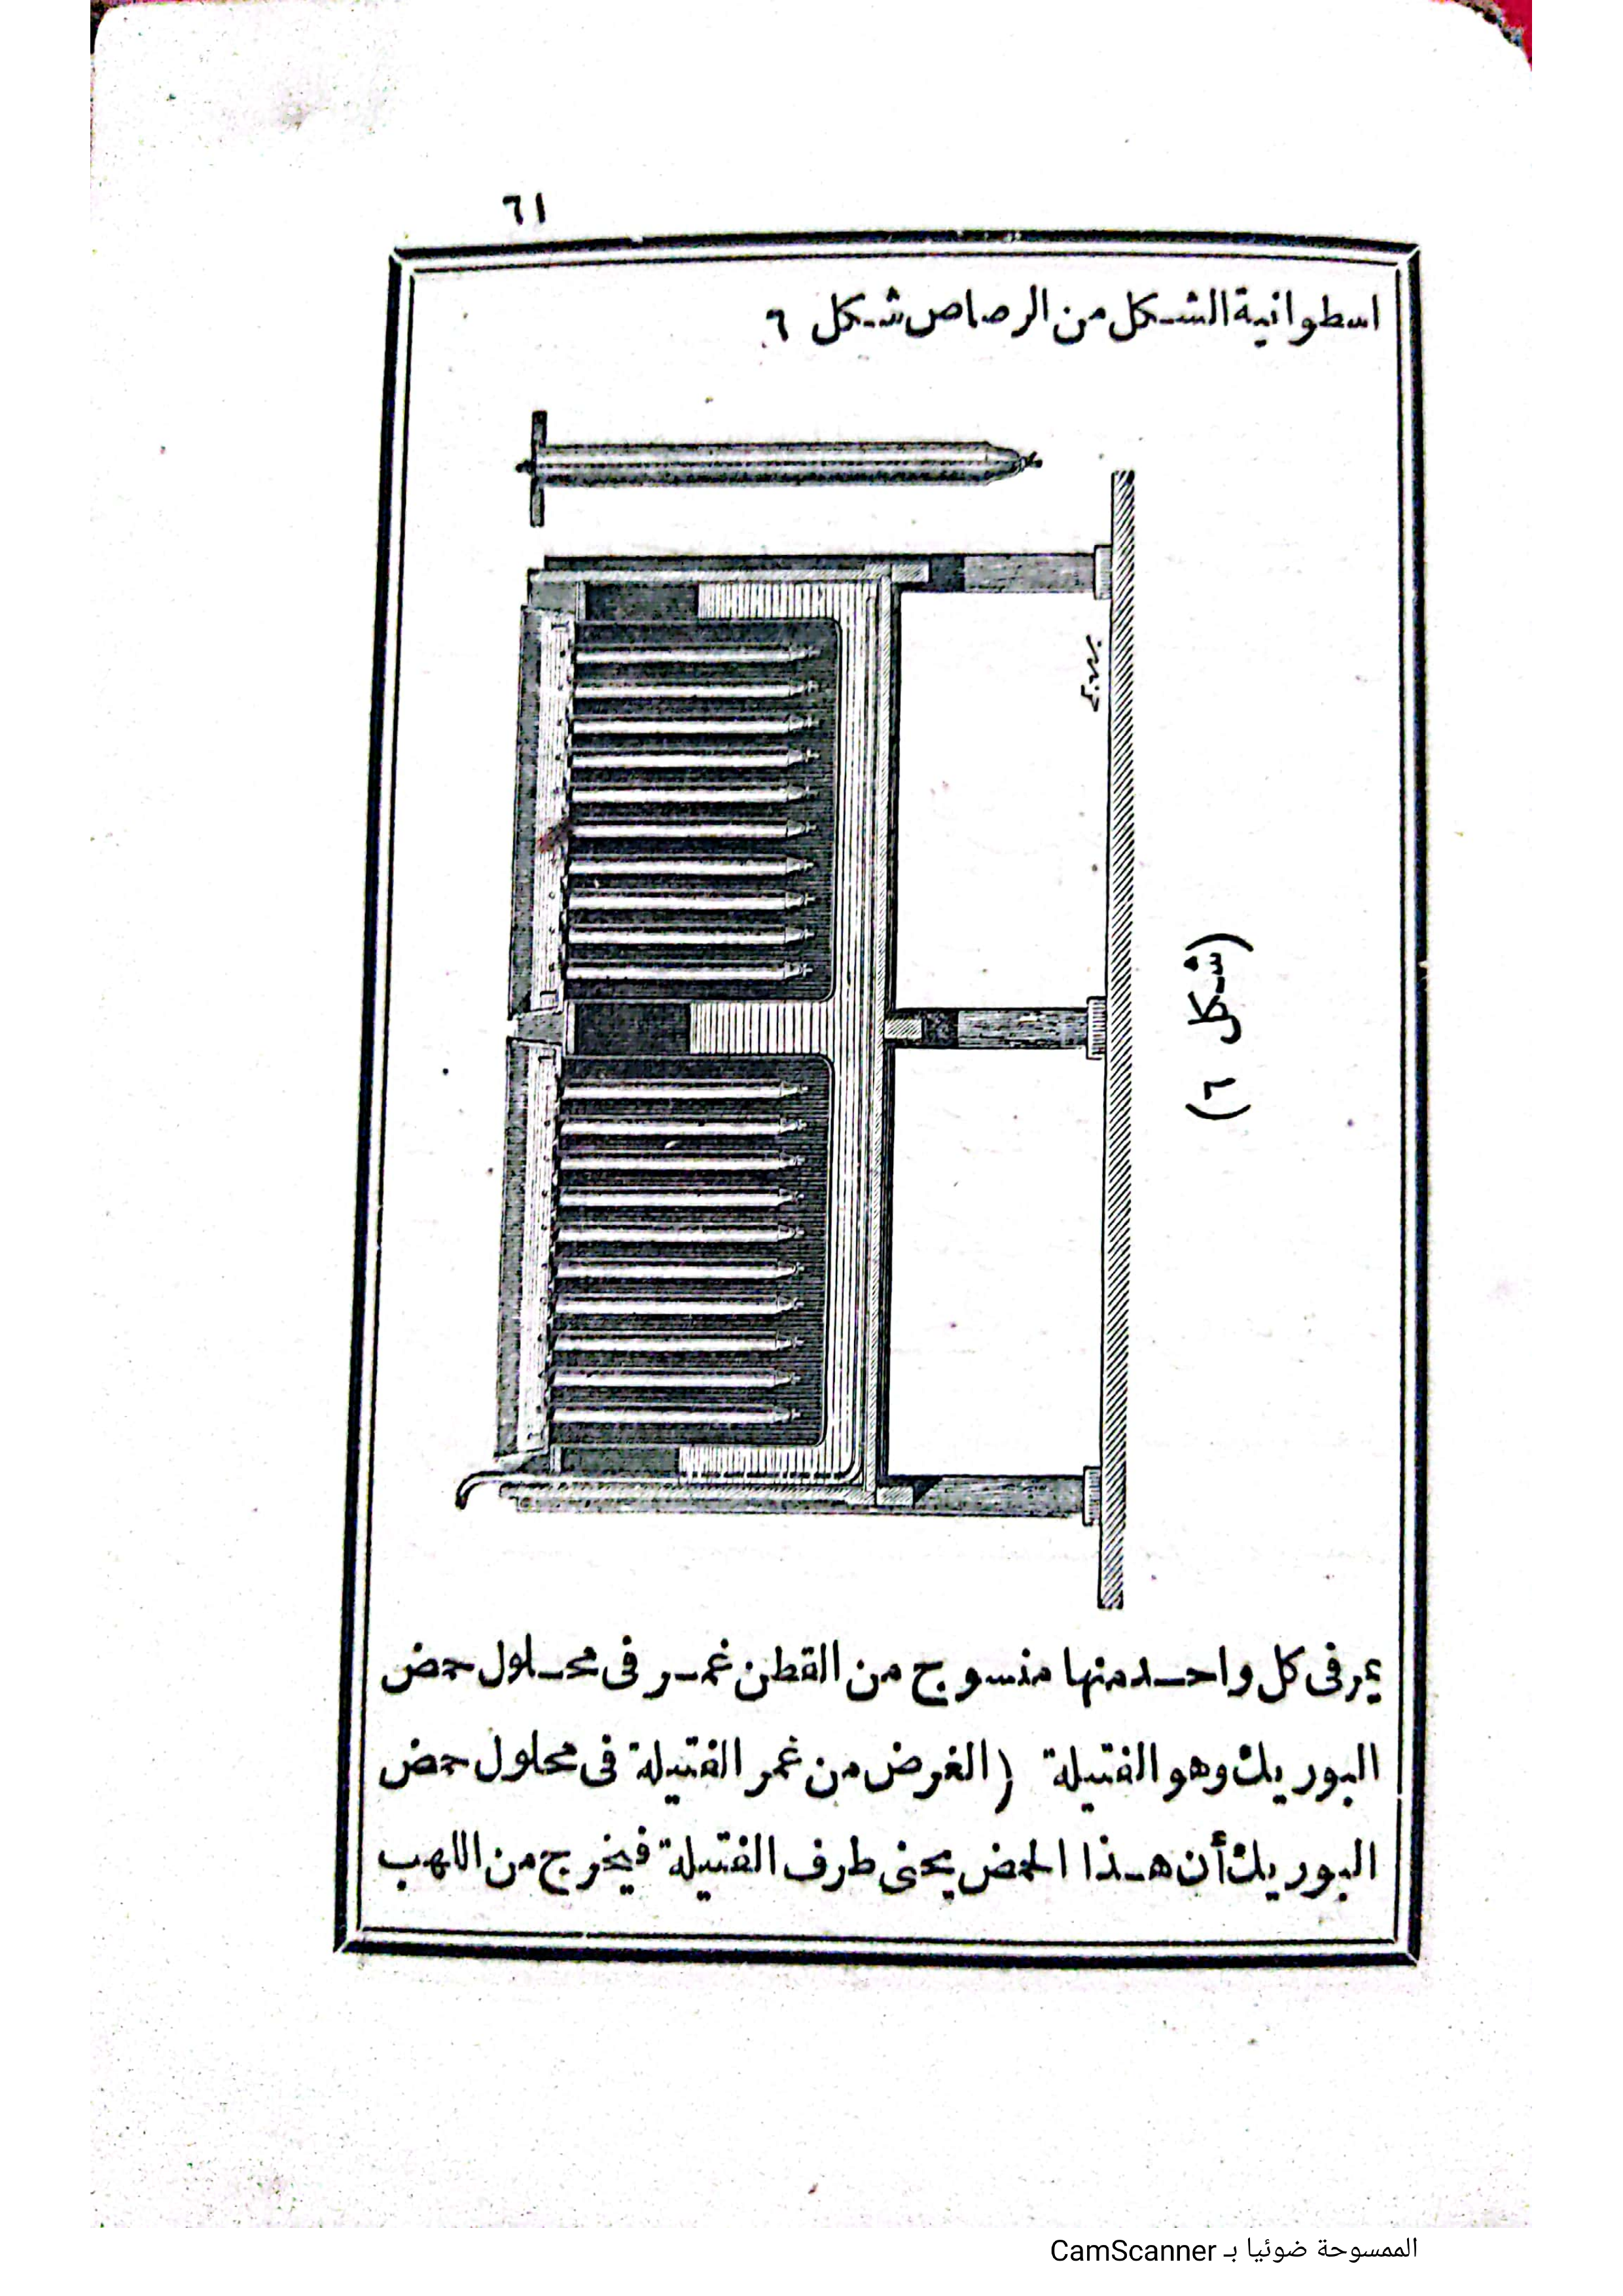 ٦١
اسطوانية الشكل من الرصاص شكل ٦
(شكل ٦)
يمر فى كل واحد منها منسوج من القطن غمر فى محلول حمض
البوريك وهو الفتيلة (الغرض من غمر الفتيلة فى محلول حمض
البوريك أن هذا الحمض يحنى طرف الفتيلة فيخرج من اللهب
الممسوحة ضوئيا بـ CamScanner